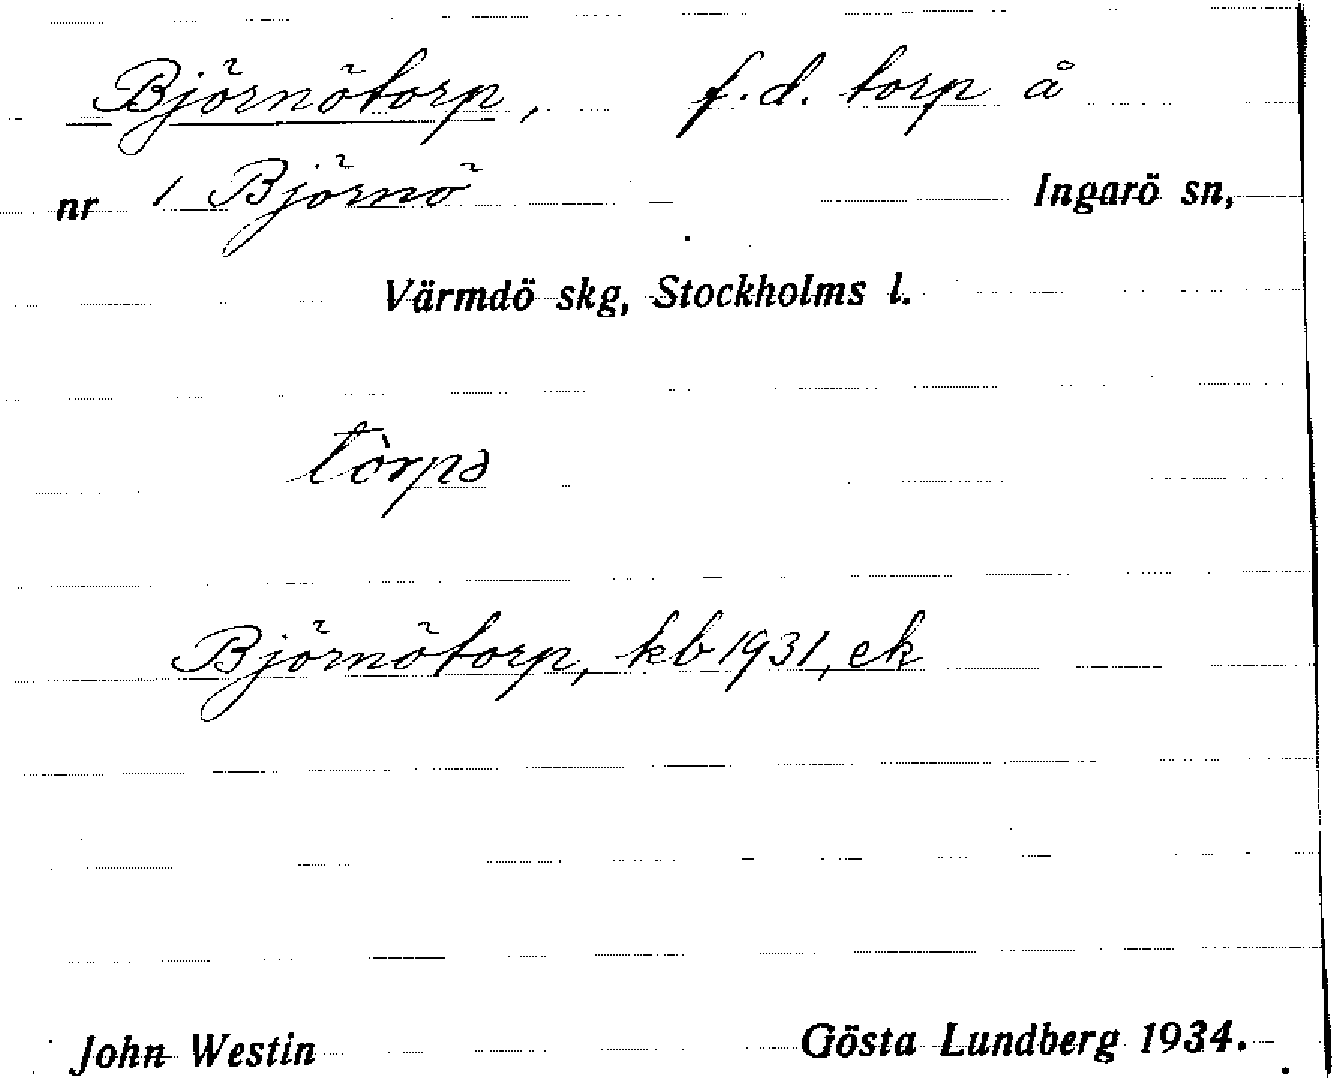 Björnötorp, f.d. torp å
nr 1 Björnö Ingarö sn,
Värmdö skg, Stockholms l.
tòrpə
Björnötorp, kb 1931, ek
John Westin Gösta Lundberg 1934.